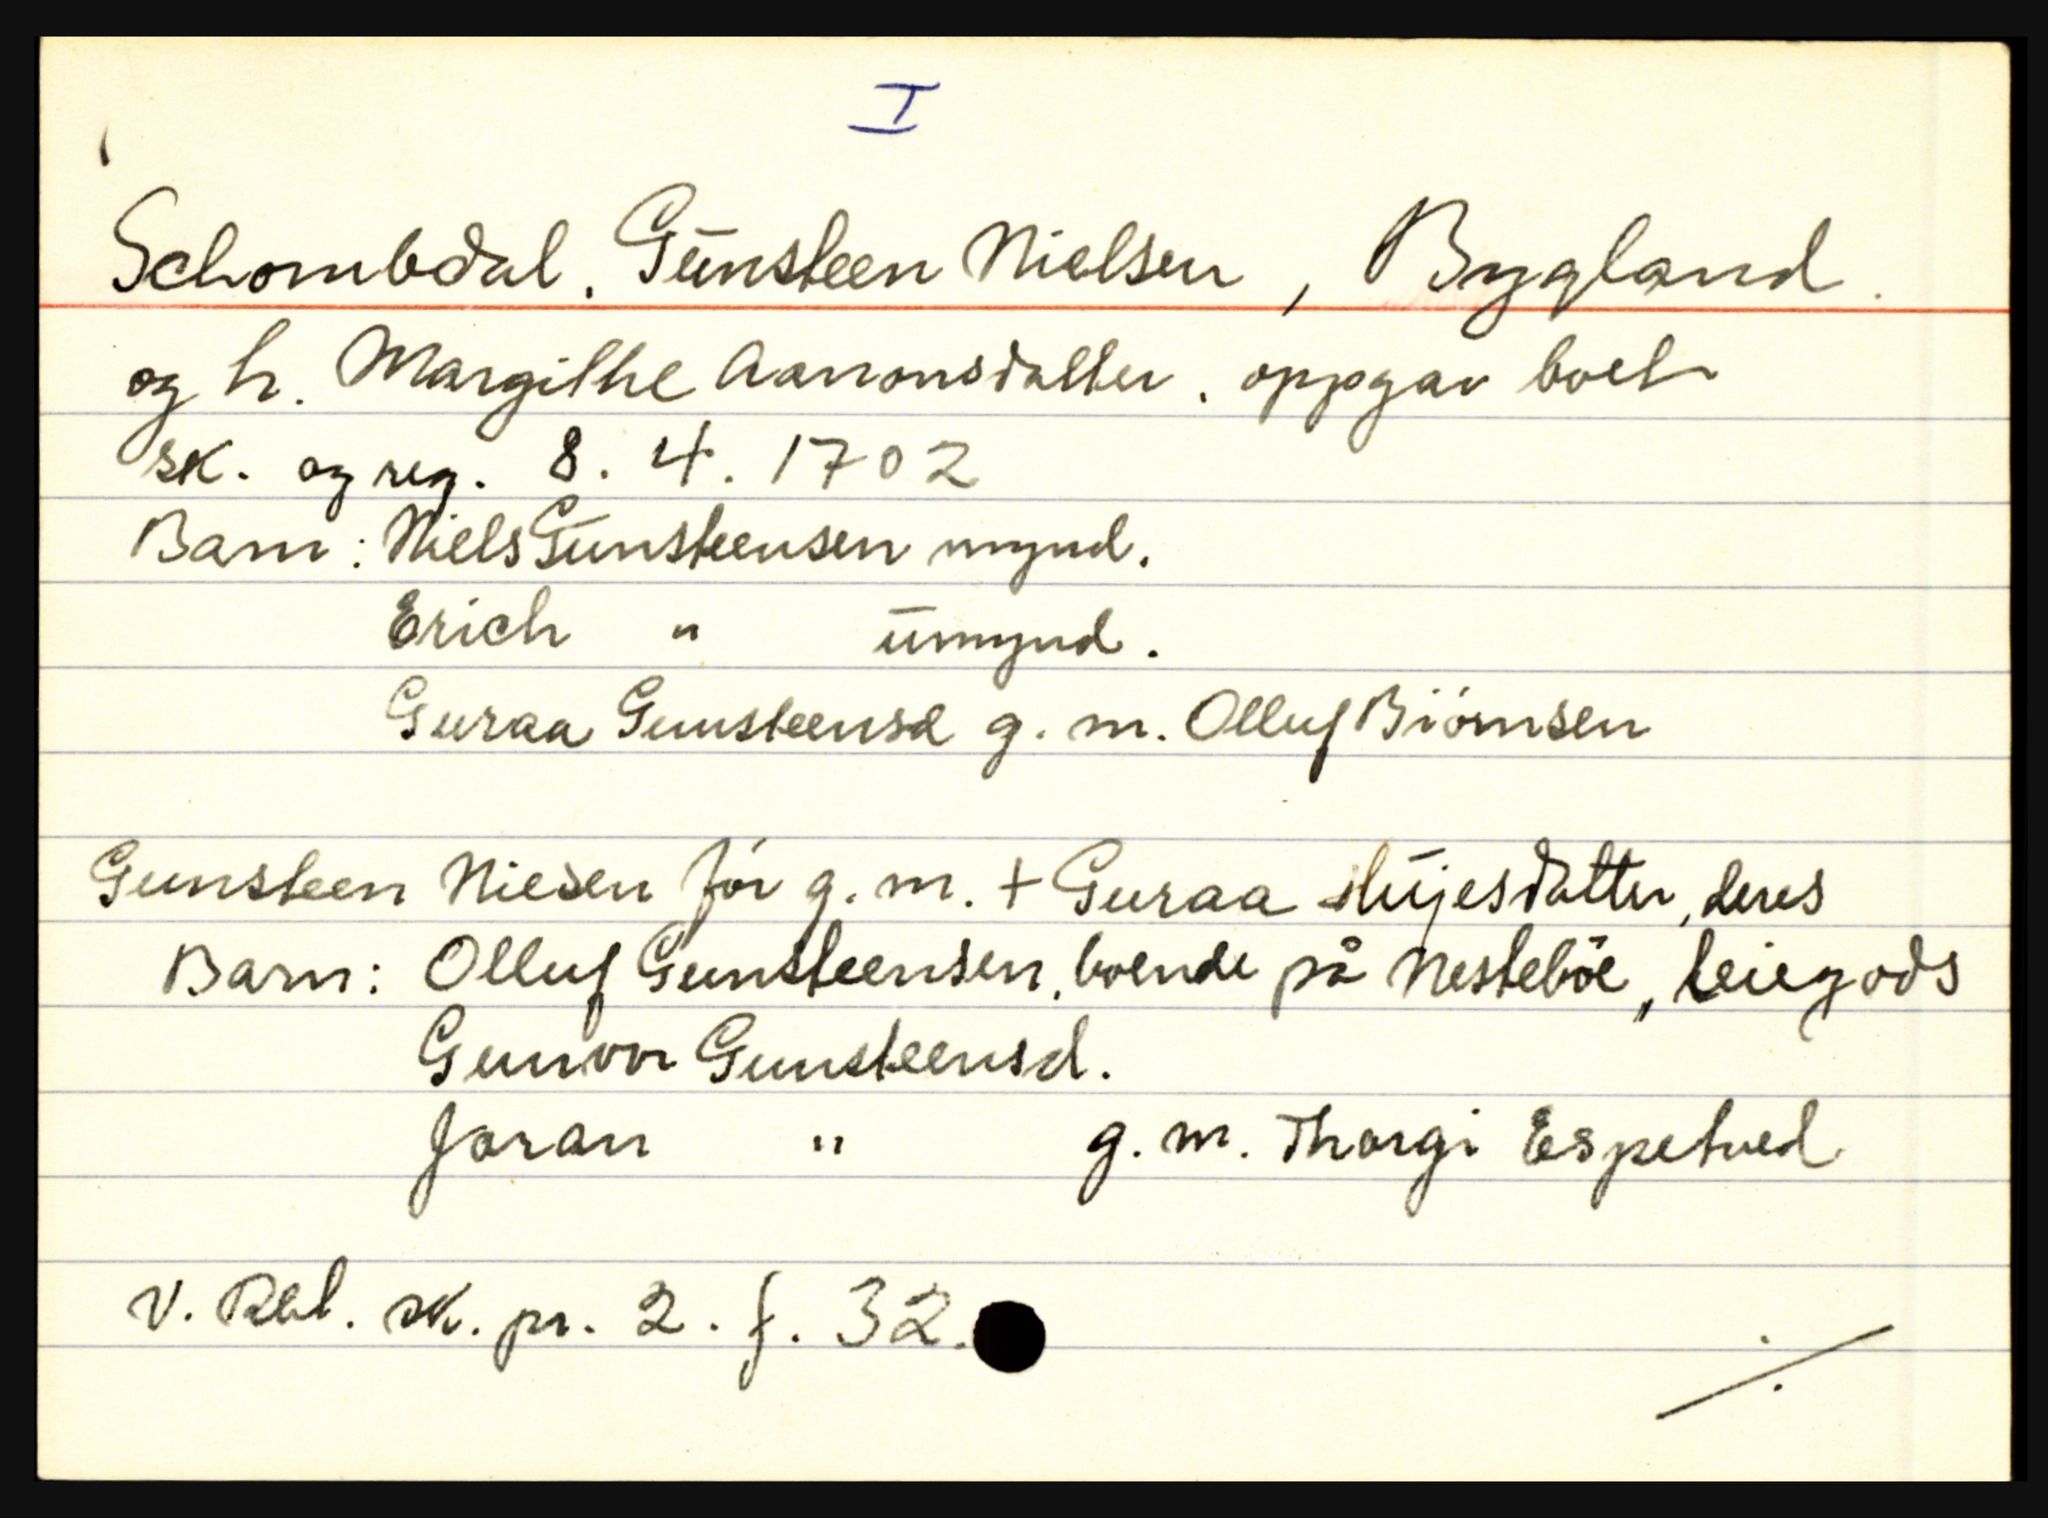 I
Schombdal. Gunsteen Nielsen, Bygland.
og h. Margithe Aanonsdatter. oppgav boet
sk. og reg. 8. 4. 1702
Barn: Niels Gunsteensen mynd.
Erich " umynd.
Guraa Gunsteensd g. m. Olluf Biörnsen
Gunsteen Niesen før g. m. + Guraa deres
Barn: Olluf Gunsteensen, boende på Nesteböe, leiegods
Gunvor Gunsteensd.
Joran " g. m. Thorgi Espetved
V. Rbl. sk. pr. 2. f. 32.
./.